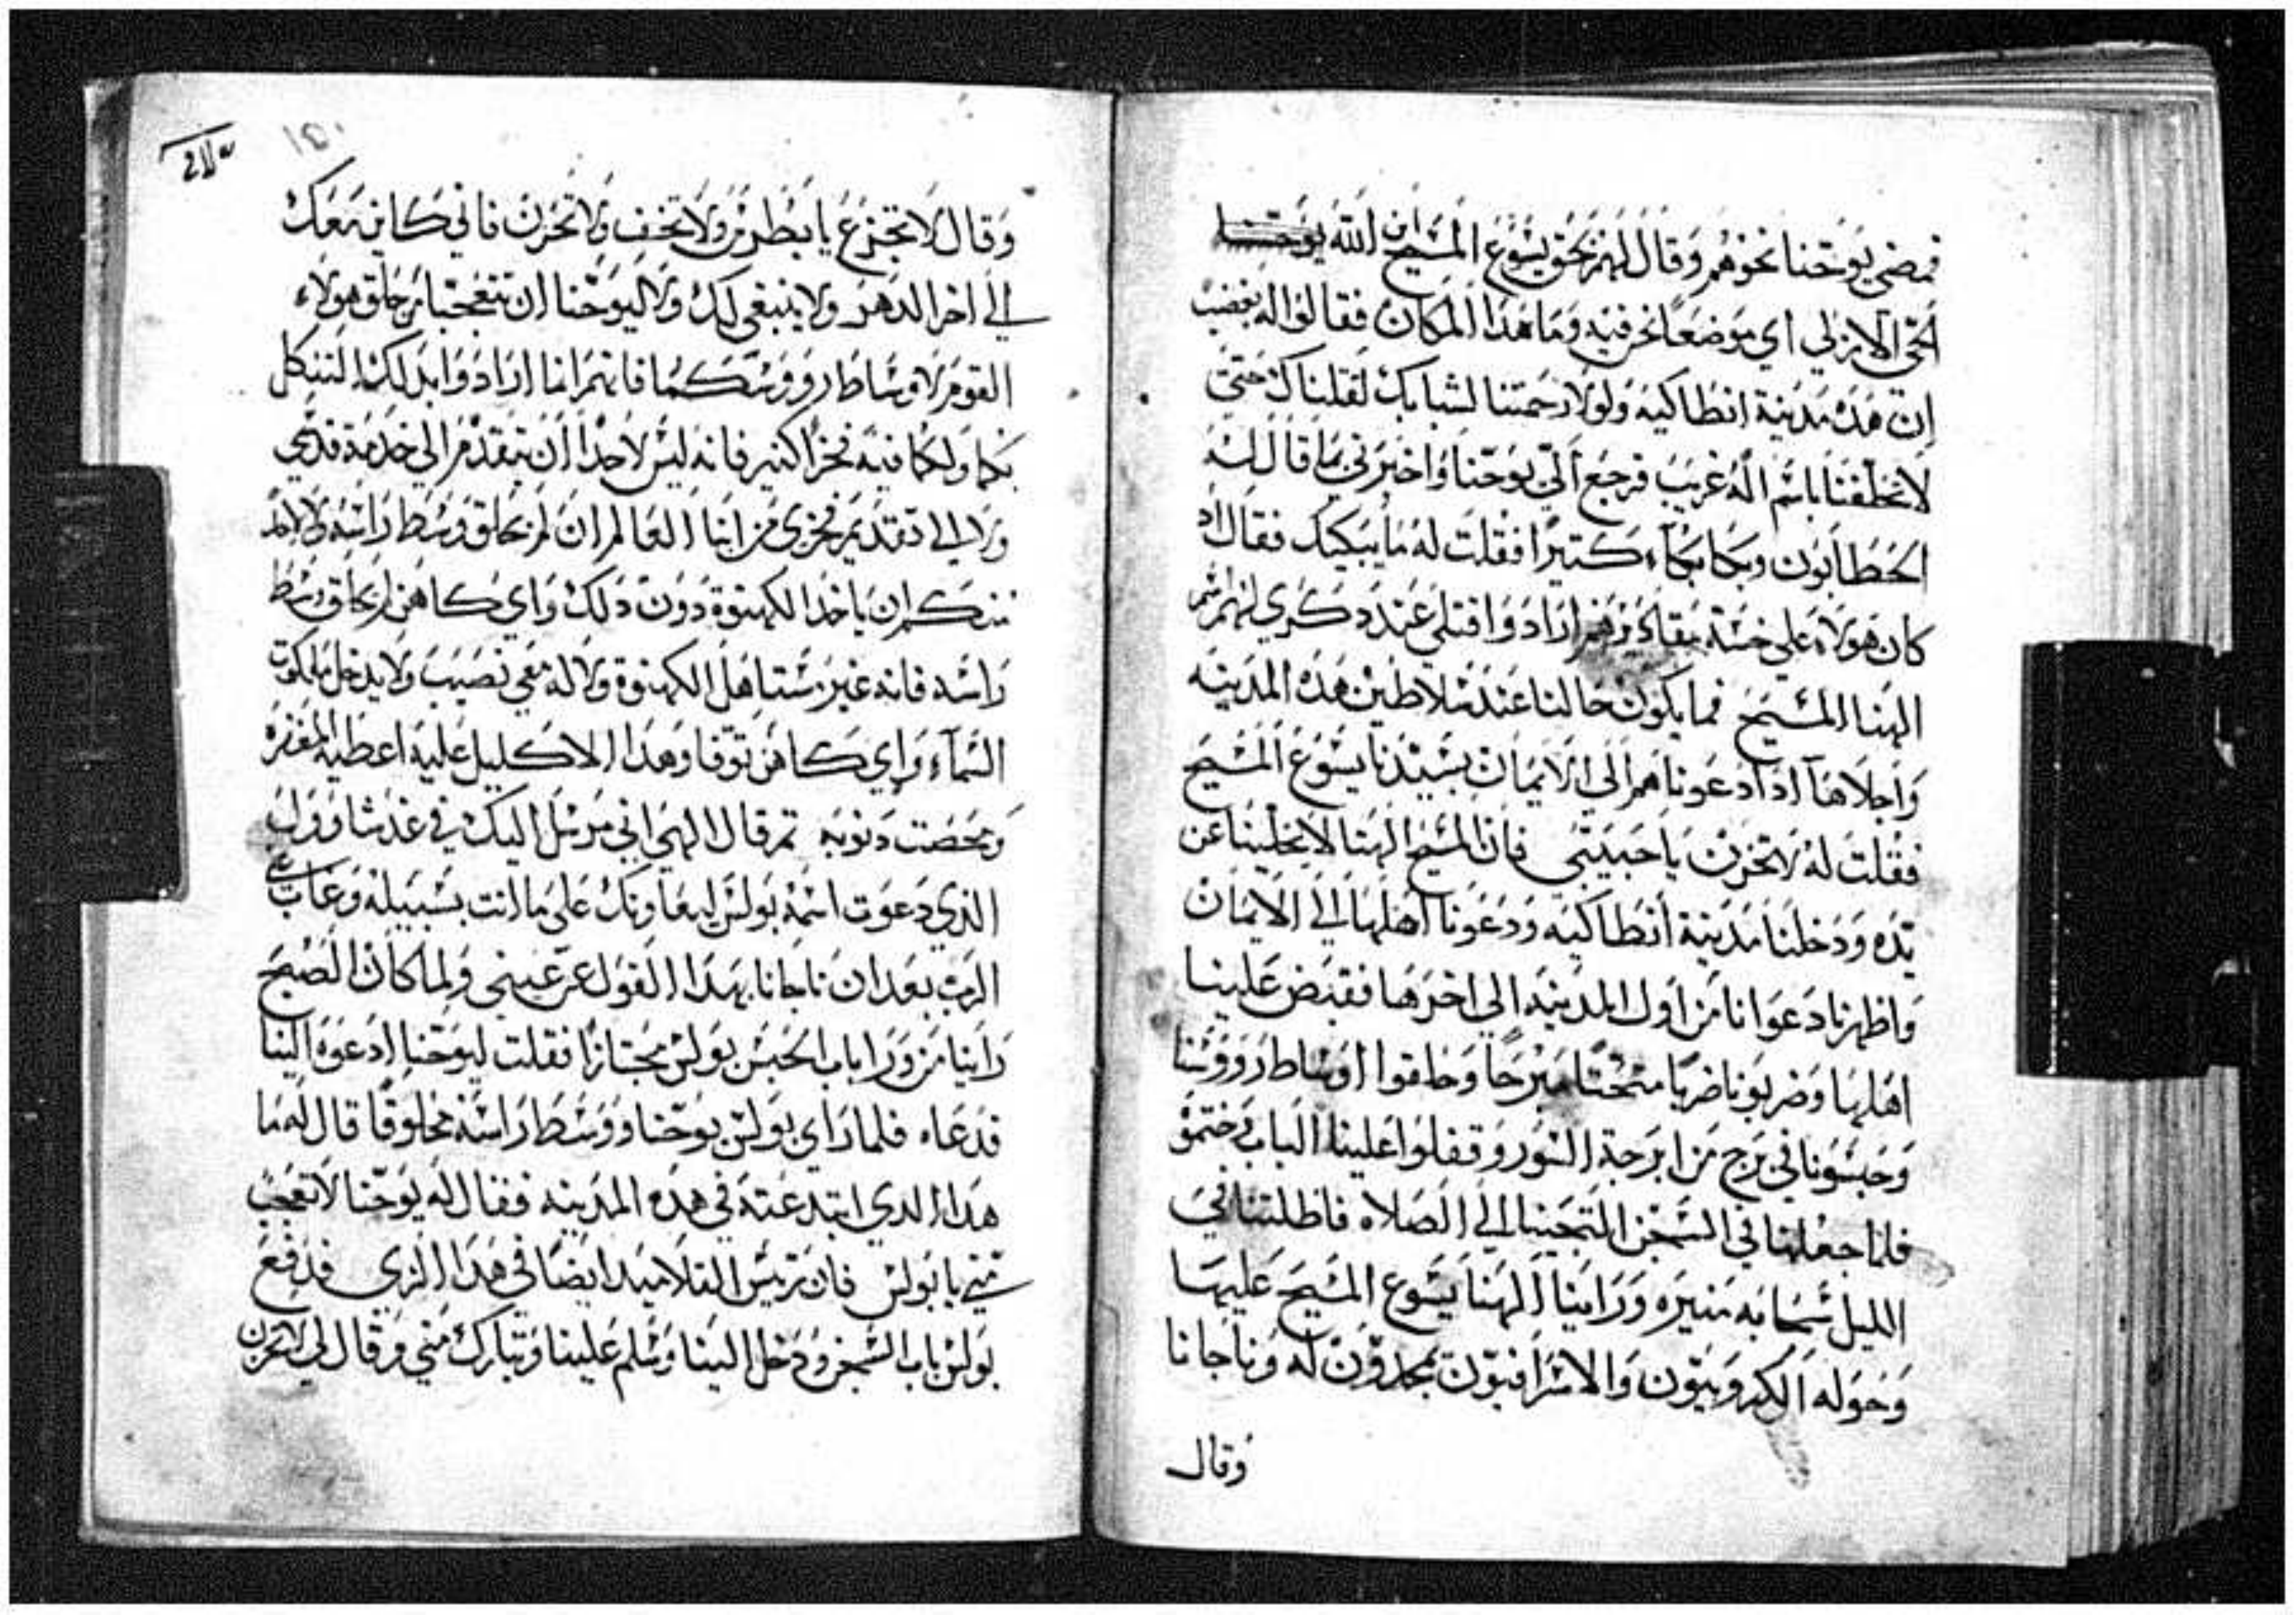 فمضي يوحنا نحوهم وقال لهم بحق يسوع المسيح ابن الله
الحي الازلي اي موضعًا نحن فيه وما هدا المكان فقالوا له بغضب
ان هده مدينة انطاكيه ولولا رحمتنا لشبابك لقتلناك حتى
لا تحلفنا باسم اله غريب فرجع الي يوحنا واخبرني بما قال له
الحطابون وبكا بكاء كتيرًا فقلت له ما يبكيك فقال اد
كان هولاء علي خسة مقاديرهم ارادوا قتلي عند دكري لهم اسم
الهنا المسيح فما يكون حالنا عند سلاطين هده المدينه
واجلاها ادا دعوناهم الي الايمان بسيدنا يسوع المسيح
فقلت له لا تحزن يا حبيبي فان المسيح الهنا لا يخلينا عن
يده ودخلنا مدينة انطاكيه ودعونا اهلها الي الايمان
واظهرنا دعوانا من اول المدينه الي اخرها فقبض علينا
اهلها وضربونا ضربًا مبرحًا وحلقوا اوساط رووسنا
وحبسونا في برج من ابرجة السور وقفلوا علينا الباب وختموه
فلما جعلنا في السجن التجينا الي الصلاه فاظلتنا في
الليل سحابه منيره وراينا الهنا يسوع المسيح عليها
وحوله الكروبيون والاسرافيون يمجدون له وناجانا
وقال
١٥١
وقال لا تجزع يا بطرس ولا تخف ولا تحزن فاني كاين معك
الي اخر الدهر ولا ينبغي لك ولا ليوحنا ان تتعجبا من حلق هولاء
القوم لاوساط رووسكما فانهم انما ارادوا بدلك التنكل
بكما ولكما فيه فخرًا كتير فانه ليس لاحدًا ان يتقدم الي خدمة قدسي
ولا الي تقديم من ابنا العالم ان لم يحلق وسط راسه ولا
ان ياخد الكهنوة دون دلك واي كاهن لم يحلق وسط
راسه فانه غير مستاهل الكهنوة ولا له معي نصيب ولا يدخل ملكوت
السماء واي كاهن توفا وهدا الاكليل عليه اعطيه المغفره
ومحصت دنوبه تم قال الهي اني مرسل اليك في غد شاوول
الدي دعوت اسمه بولس ليعاونك على ما انت بسبيله وغاب
الرب بعد ان ناجانا بهدا القول عن عيني ولما كان الصبح
راينا من ورا باب الحبس بولس مجتازًا فقلت ليوحنا ادعوه الينا
فدعاه فلما راي بولس يوحنا ووسط راسه محلوقًا قال له ما
هدا الدي ابتدعته في هده المدينه فقال له يوحنا لا تعجب
مني يا بولس فان رييس التلاميد ايضًا في هدا الزي فدفع
بولس باب السجن ودخل الينا وسلم علينا وتبارك مني وقال لي لا تحزن